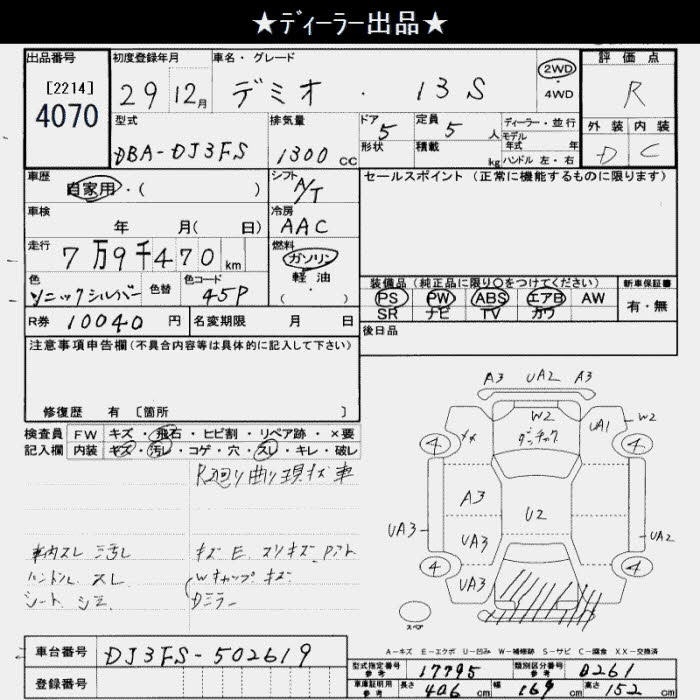 ★ディーラー出品★
出品番号 初度登録年月 車名・グレード 評価点
[2214] 4070 29 12月 デミオ・13S 2WD 4WD R
型式 排気量 ドア 定員 ディーラー・並行
DBA-DJ3FS 1300cc 5 5人 モデル年式 年
形状 積載 kg ハンドル 左・右
外装 内装
D C
車歴 シフト セールスポイント(正常に機能するものに限ります)
自家用・( ) A/T
車検 冷房
年 月( 日) AAC
走行 燃料
7万9千470km ガソリン
軽油
・
( )
色 色替 色コード
ソニックシルバー 45P
装備品(純正品に限り〇をつけてください) 新車保証書
PS PW ABS エアB AW 有・無
SR ナビ TV カワ
R券 10040円 名変期限 月 日 後日品
注意事項申告欄(不具合内容等は具体的に記入して下さい)
修復歴 有 〔箇所 〕
検査員 FW キズ・飛石・ヒビ割・リペア跡・×要
記入欄 内装 キズ・汚レ・コゲ・穴・スレ・キレ・破レ
R廻り曲り現状車
車内スレ 汚レ キズ E スリキズ
ハンドル スレ Wキャップ キズ
シート シミ Dミラー
A3 UA2 A3
W2 UA1 W2
4 4
A3 U2
UA3 UA3 UA2
4 4
UA3
スペア
A-キズ E-エクボ U-凹み W-補修跡 S-サビ C-腐食 XX-交換済
車台番号 DJ3FS-502619
登録番号
型式指定番号 参考 17795 類別区分番号 参考 0261
車庫証明用 参考 長さ 406cm 幅 169cm 高さ 152cm